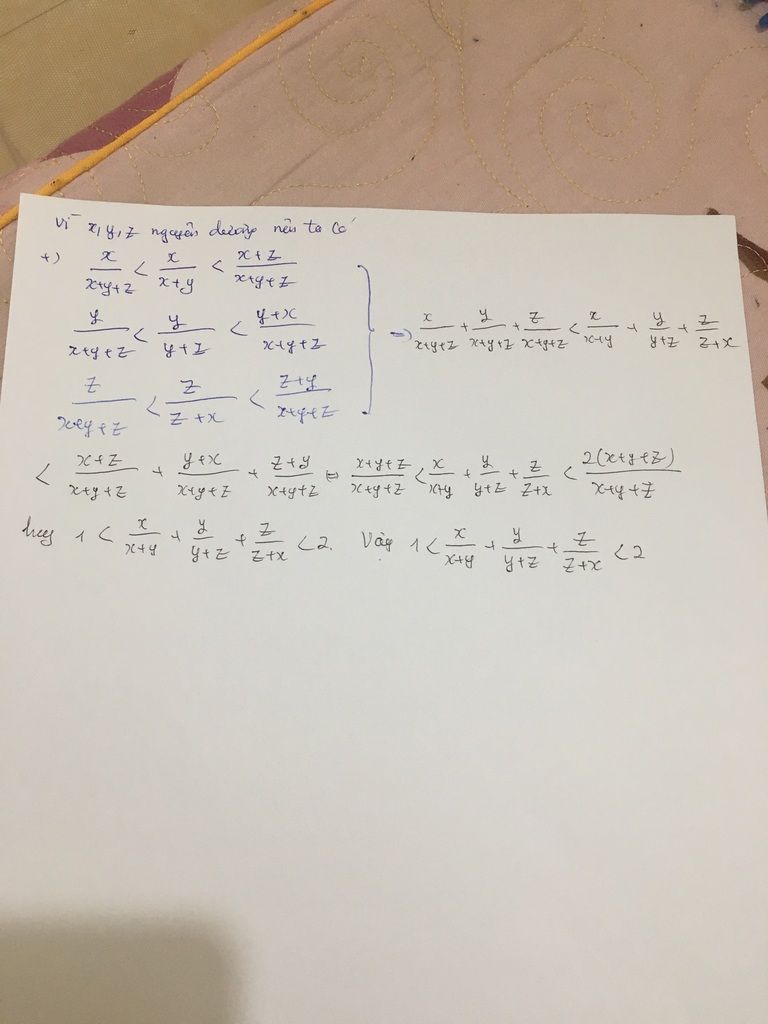 Vì x, y, z nguyên dương nên ta có
+) x/(x+y+z) < x/(x+y) < (x+z)/(x+y+z)
y/(x+y+z) < y/(y+z) < (y+x)/(x+y+z)
z/(x+y+z) < z/(z+x) < (z+y)/(x+y+z)
=> x/(x+y+z) + y/(x+y+z) + z/(x+y+z) < x/(x+y) + y/(y+z) + z/(z+x)
< (x+z)/(x+y+z) + (y+x)/(x+y+z) + (z+y)/(x+y+z) ⇔ (x+y+z)/(x+y+z) < x/(x+y) + y/(y+z) + z/(z+x) < 2(x+y+z)/(x+y+z)
hay 1 < x/(x+y) + y/(y+z) + z/(z+x) < 2. Vậy 1 < x/(x+y) + y/(y+z) + z/(z+x) < 2